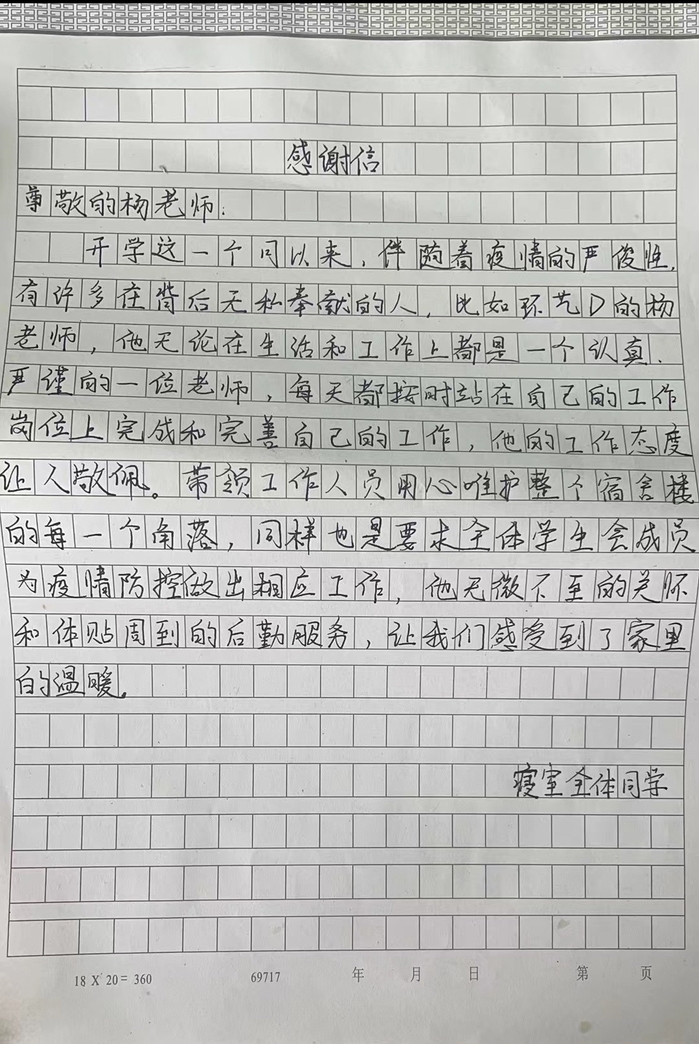 感谢信
尊敬的杨老师:
开学这一个月以来,伴随着疫情的严俊性,
有许多在背后无私奉献的人,比如环艺D的杨
老师,他无论在生活和工作上都是一个认真、
严谨的一位老师,每天都按时站在自己的工作
岗位上完成和完善自己的工作,他的工作态度
让人敬佩。带领工作人员用心唯护整个宿舍楼
的每一个角落,同样也是要求全体学生会成员
为疫情防控做出相应工作,他无微不至的关怀
和体贴周到的后勤服务,让我们感受到了家里
的温暖。
寝室全体同学
18 X 20 = 360 69717 年 月 日 第 页